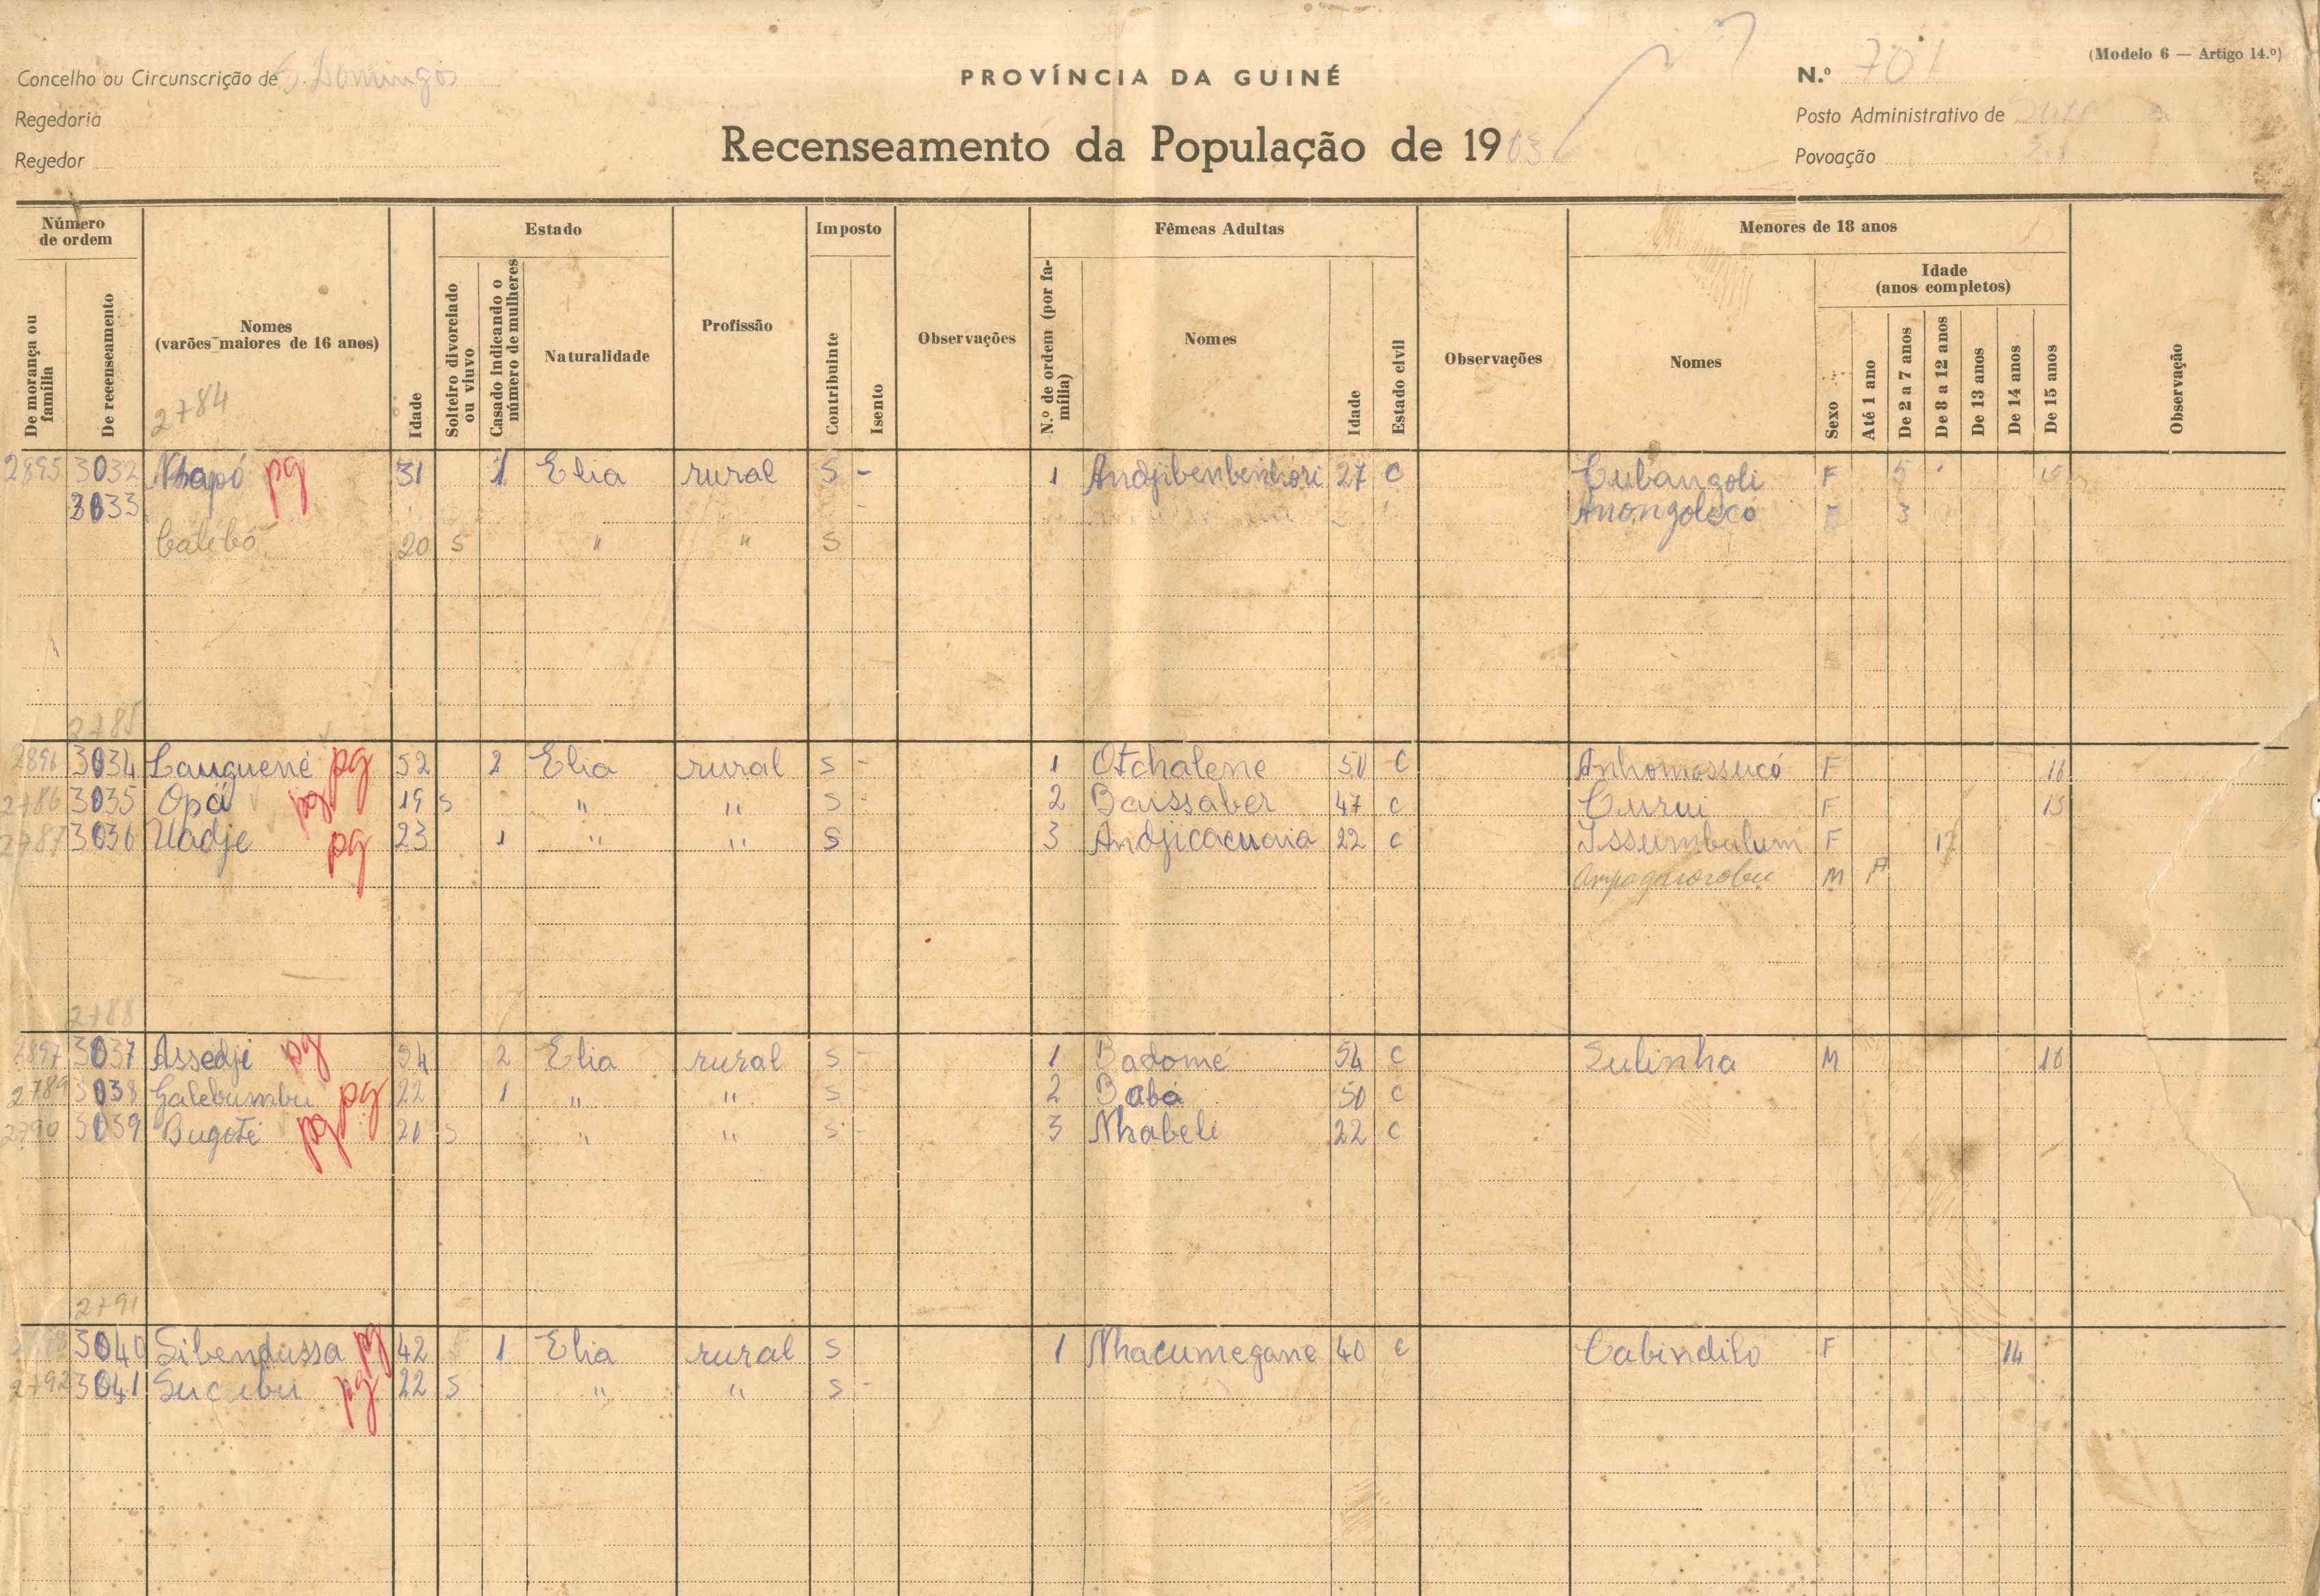 (Modelo 6 — Artigo 14.º)
Concelho ou Circunscrição de S. Domingos
PROVÍNCIA DA GUINÉ
N.º 701
Regedoria
Posto Administrativo de
Regedor
Recenseamento da População de 19
Povoação
Número de ordem
Estado
Imposto
Fêmeas Adultas
Menores de 18 anos
Idade
(anos completos)
De morança ou família
De recenseamento
Nomes
(varões maiores de 16 anos)
Idade
Solteiro divorciado ou viuvo
Casado indicando o número de mulheres
Naturalidade
Profissão
Contribuinte
Isento
Observações
N.º de ordem (por família)
Nomes
Idade
Estado civil
Observações
Nomes
Sexo
Até 1 ano
De 2 a 7 anos
De 8 a 12 anos
De 13 anos
De 14 anos
De 15 anos
Observação
2784
2895 3032 Nhapó pg 31 1 Elia rural S - 1 27 C Cubangoli F 5
3033 Anongoleco 3
Calébó 20 S " " S
2785
2896 3034 Cauguené pg 52 2 Elia rural S - 1 Otchalene 50 C Anhomossucó F 16
2786 3035 Opá pg 19 S " " S - 2 Baissaber 47 C Curui F 15
2787 3036 Uadje pg 23 1 " " S 3 Andjicacuaia 22 C Issumbulum F 12
M
2788
2897 3037 Assedji pg 54 2 Elia rural S - 1 Badomé 54 C Sulinha M 16
2789 3038 Galebumbu pg 22 1 " " S - 2 Babá 50 C
2790 3039 Bugoté pg 20 S " " S - 3 Nhabeli 22 C
2791
3040 Sibendussa pg 42 1 Elia rural S 1 Nhacumegane 40 C Cabindilo F 14
2792 3041 Sucubu pg 22 S " " S -